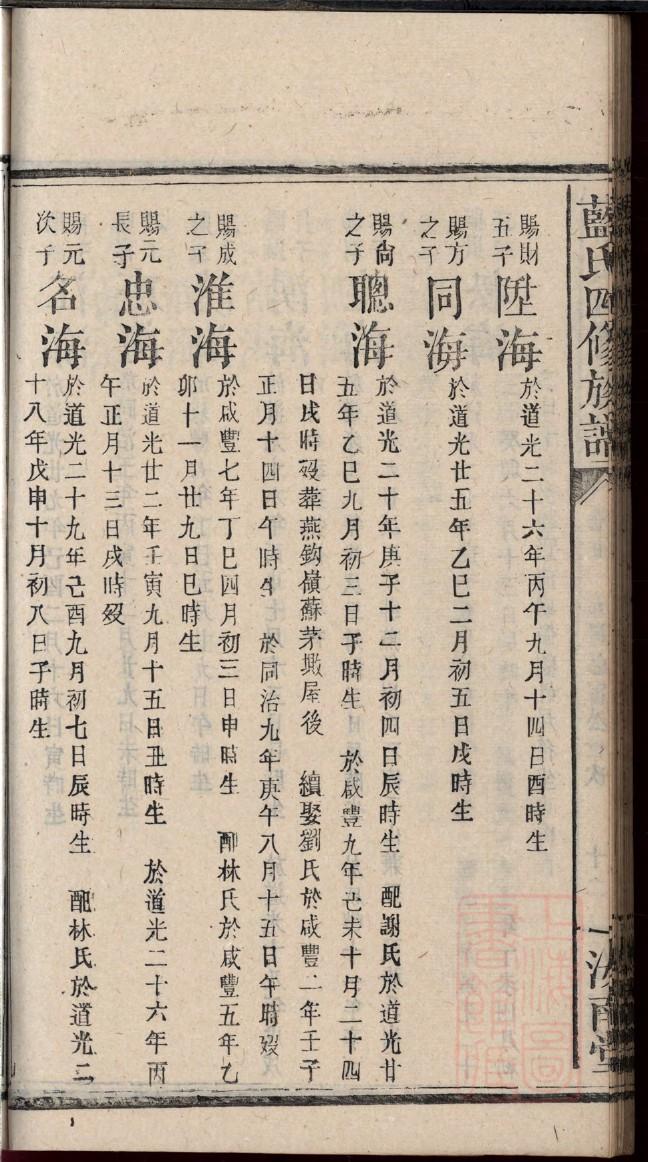 藍氏四修族譜
賜財五子
陞海
於道光二十六年丙午九月十四日酉時生
賜方之子
同海
於道光廿五年乙巳二月初五日戌時生
賜尚之子
聰海
於道光二十年庚子十二月初四日辰時生 配謝氏於道光廿
五年乙巳九月初三日子時生 於咸豐九年己未十月二十四
日戌時歿葬燕鈎嶺蘇茅墩屋後 續娶劉氏於咸豐二年壬子
正月十四日午時生 於同治九年庚午八月十五日午時歿
賜成之子
淮海
於咸豐七年丁巳四月初三日申時生 配林氏於咸豐五年乙
卯十一月廿九日巳時生
賜元長子
忠海
於道光廿二年壬寅九月十五日丑時生 於道光二十六年丙
午正月十三日戌時歿
賜元次子
名海
於道光二十九年己酉九月初七日辰時生 配林氏於道光二
十八年戊申十月初八日子時生
南堂